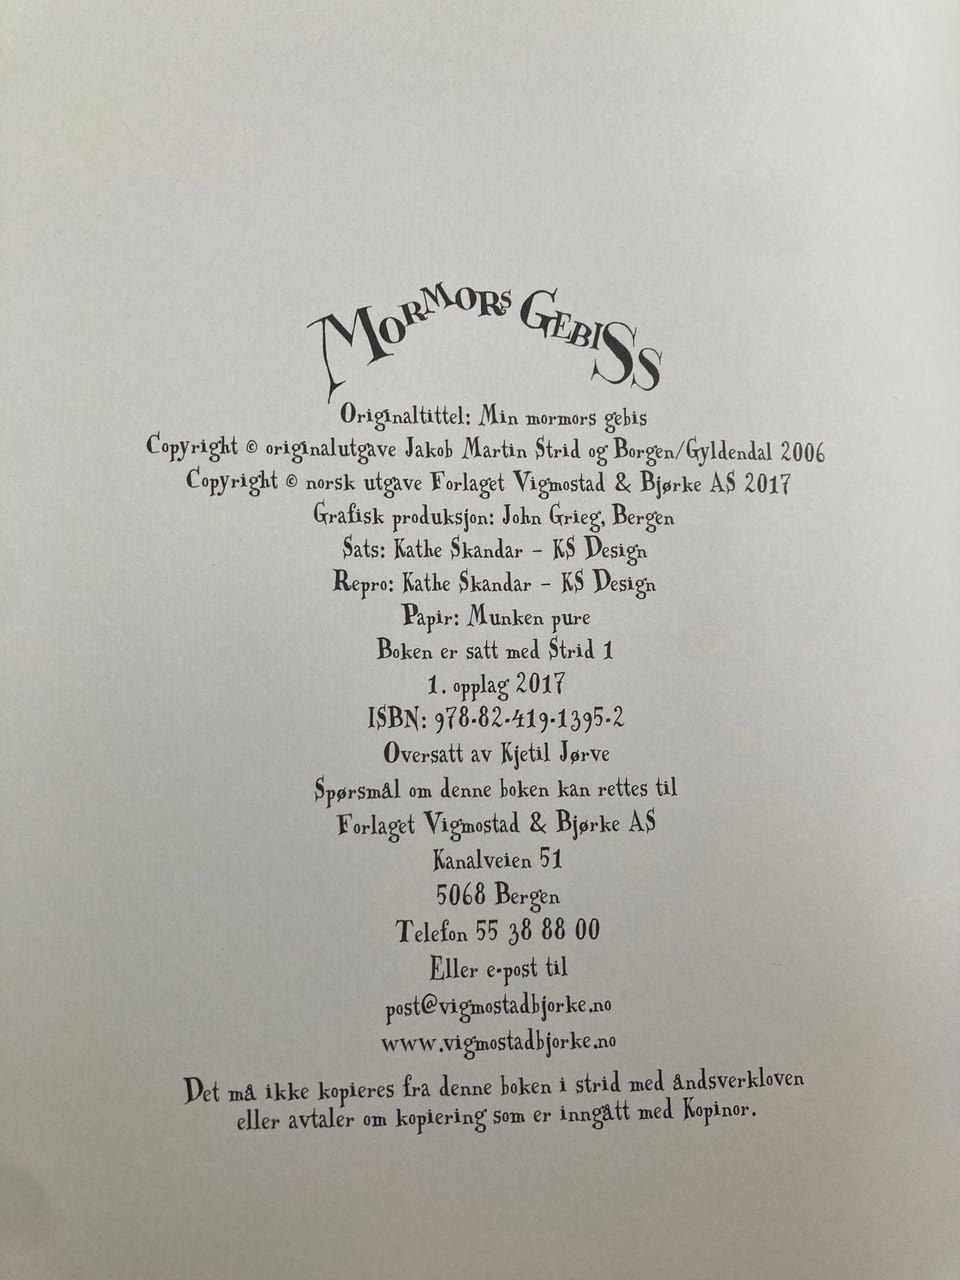 MORMORS GEBISS
Originaltittel: Min mormors gebis
Copyright © originalutgave Jakob Martin Strid og Borgen/Gyldendal 2006
Copyright © norsk utgave Forlaget Vigmostad & Bjørke AS 2017
Grafisk produksjon: John Grieg, Bergen
Sats: Kathe Skandar – KS Design
Repro: Kathe Skandar – KS Design
Papir: Munken pure
Boken er satt med Strid 1
1. opplag 2017
ISBN: 978-82-419-1395-2
Oversatt av Kjetil Jørve
Spørsmål om denne boken kan rettes til
Forlaget Vigmostad & Bjørke AS
Kanalveien 51
5068 Bergen
Telefon 55 38 88 00
Eller e-post til
post@vigmostadbjorke.no
www.vigmostadbjorke.no
Det må ikke kopieres fra denne boken i strid med åndsverkloven
eller avtaler om kopiering som er inngått med Kopinor.